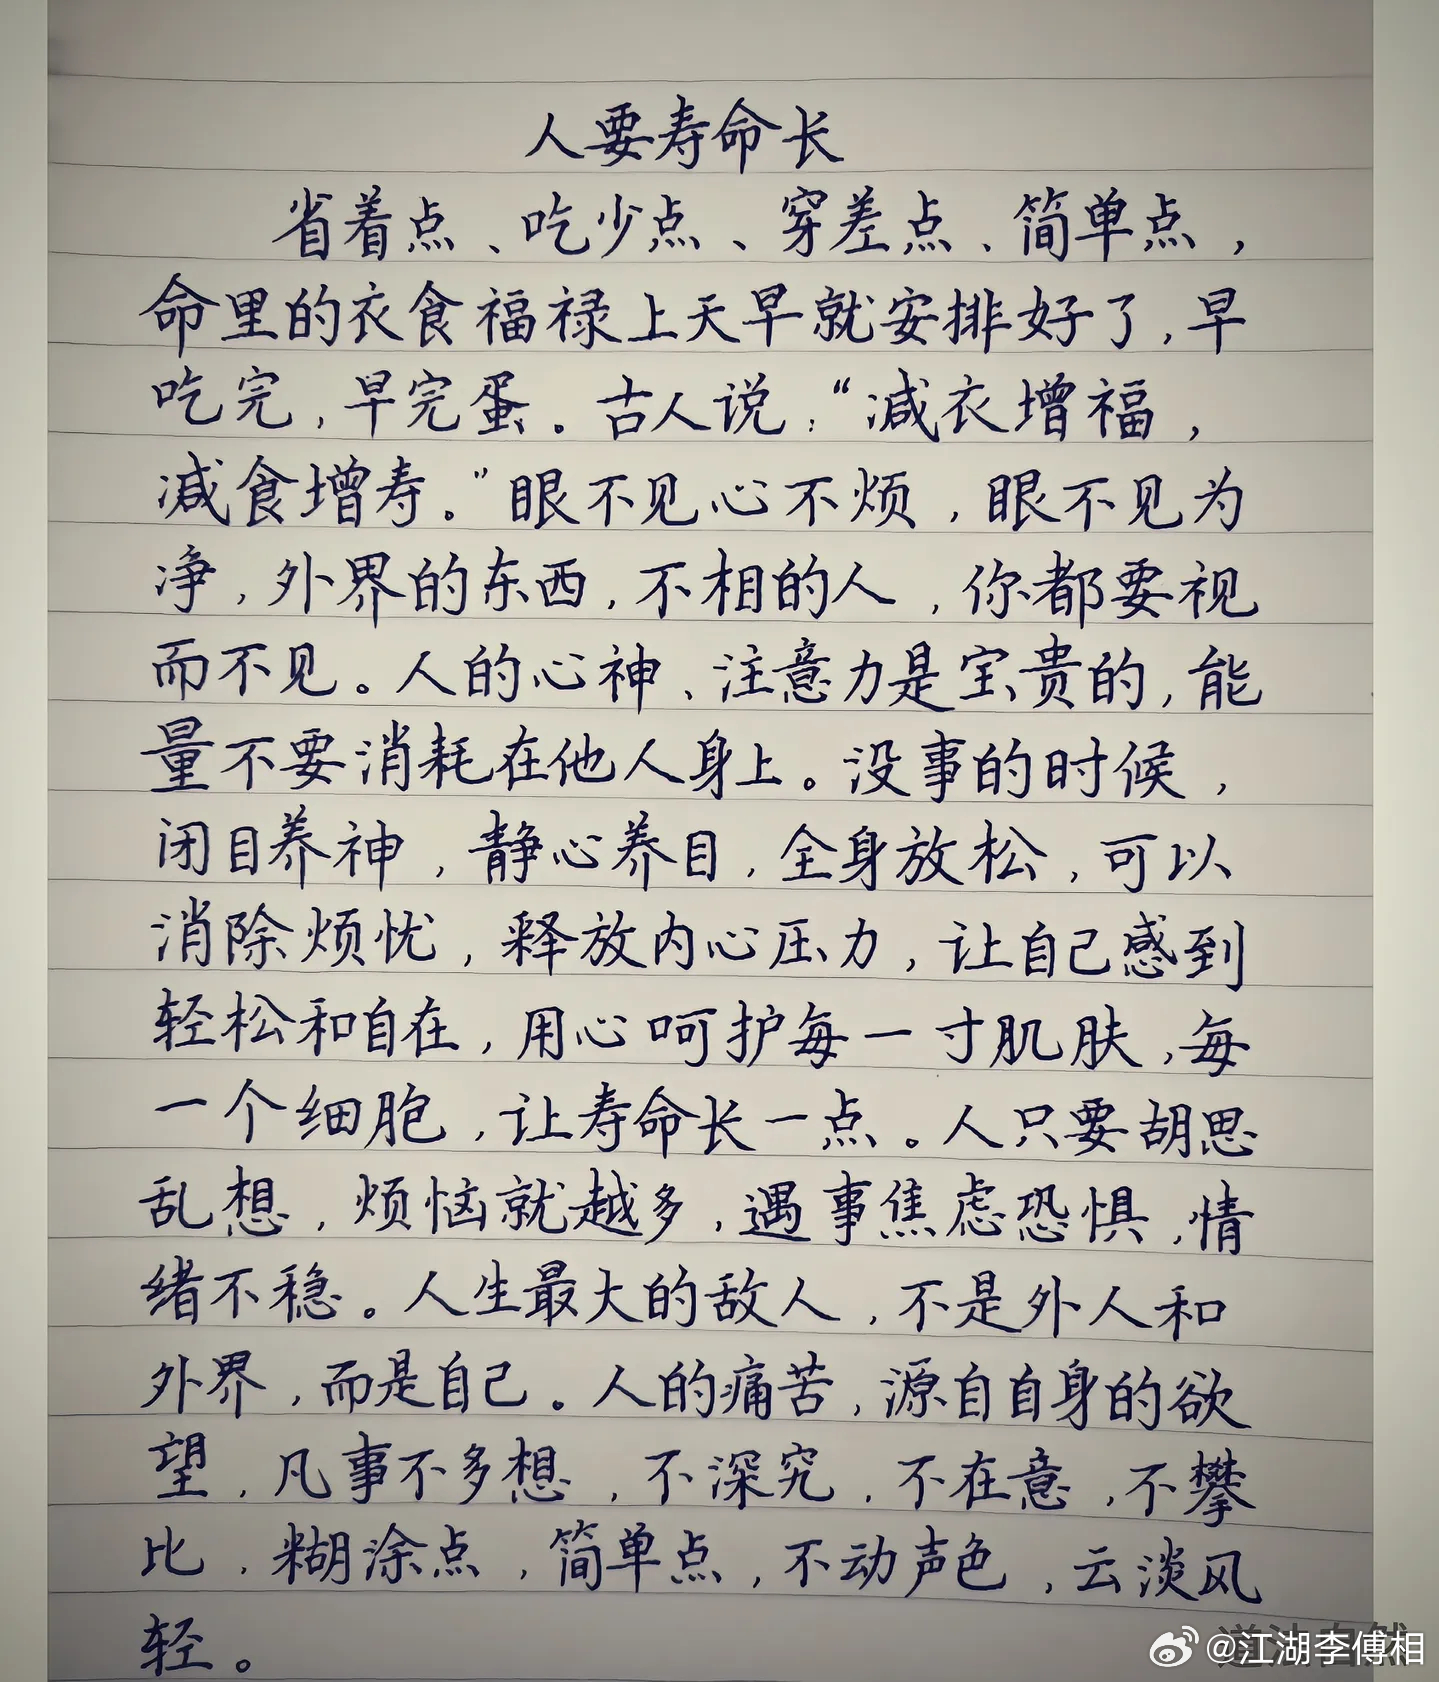 人要寿命长
省着点、吃少点、穿差点、简单点，
命里的衣食福禄上天早就安排好了，早
吃完，早完蛋。古人说：“减衣增福，
减食增寿。”眼不见心不烦，眼不见为
净，外界的东西，不相的人，你都要视
而不见。人的心神、注意力是宝贵的，能
量不要消耗在他人身上。没事的时候，
闭目养神，静心养目，全身放松，可以
消除烦忧，释放内心压力，让自己感到
轻松和自在，用心呵护每一寸肌肤，每
一个细胞，让寿命长一点。人只要胡思
乱想，烦恼就越多，遇事焦虑恐惧，情
绪不稳。人生最大的敌人，不是外人和
外界，而是自己。人的痛苦，源自自身的欲
望，凡事不多想，不深究，不在意，不攀
比，糊涂点，简单点，不动声色，云淡风
轻。
道法自然
@江湖李傅相